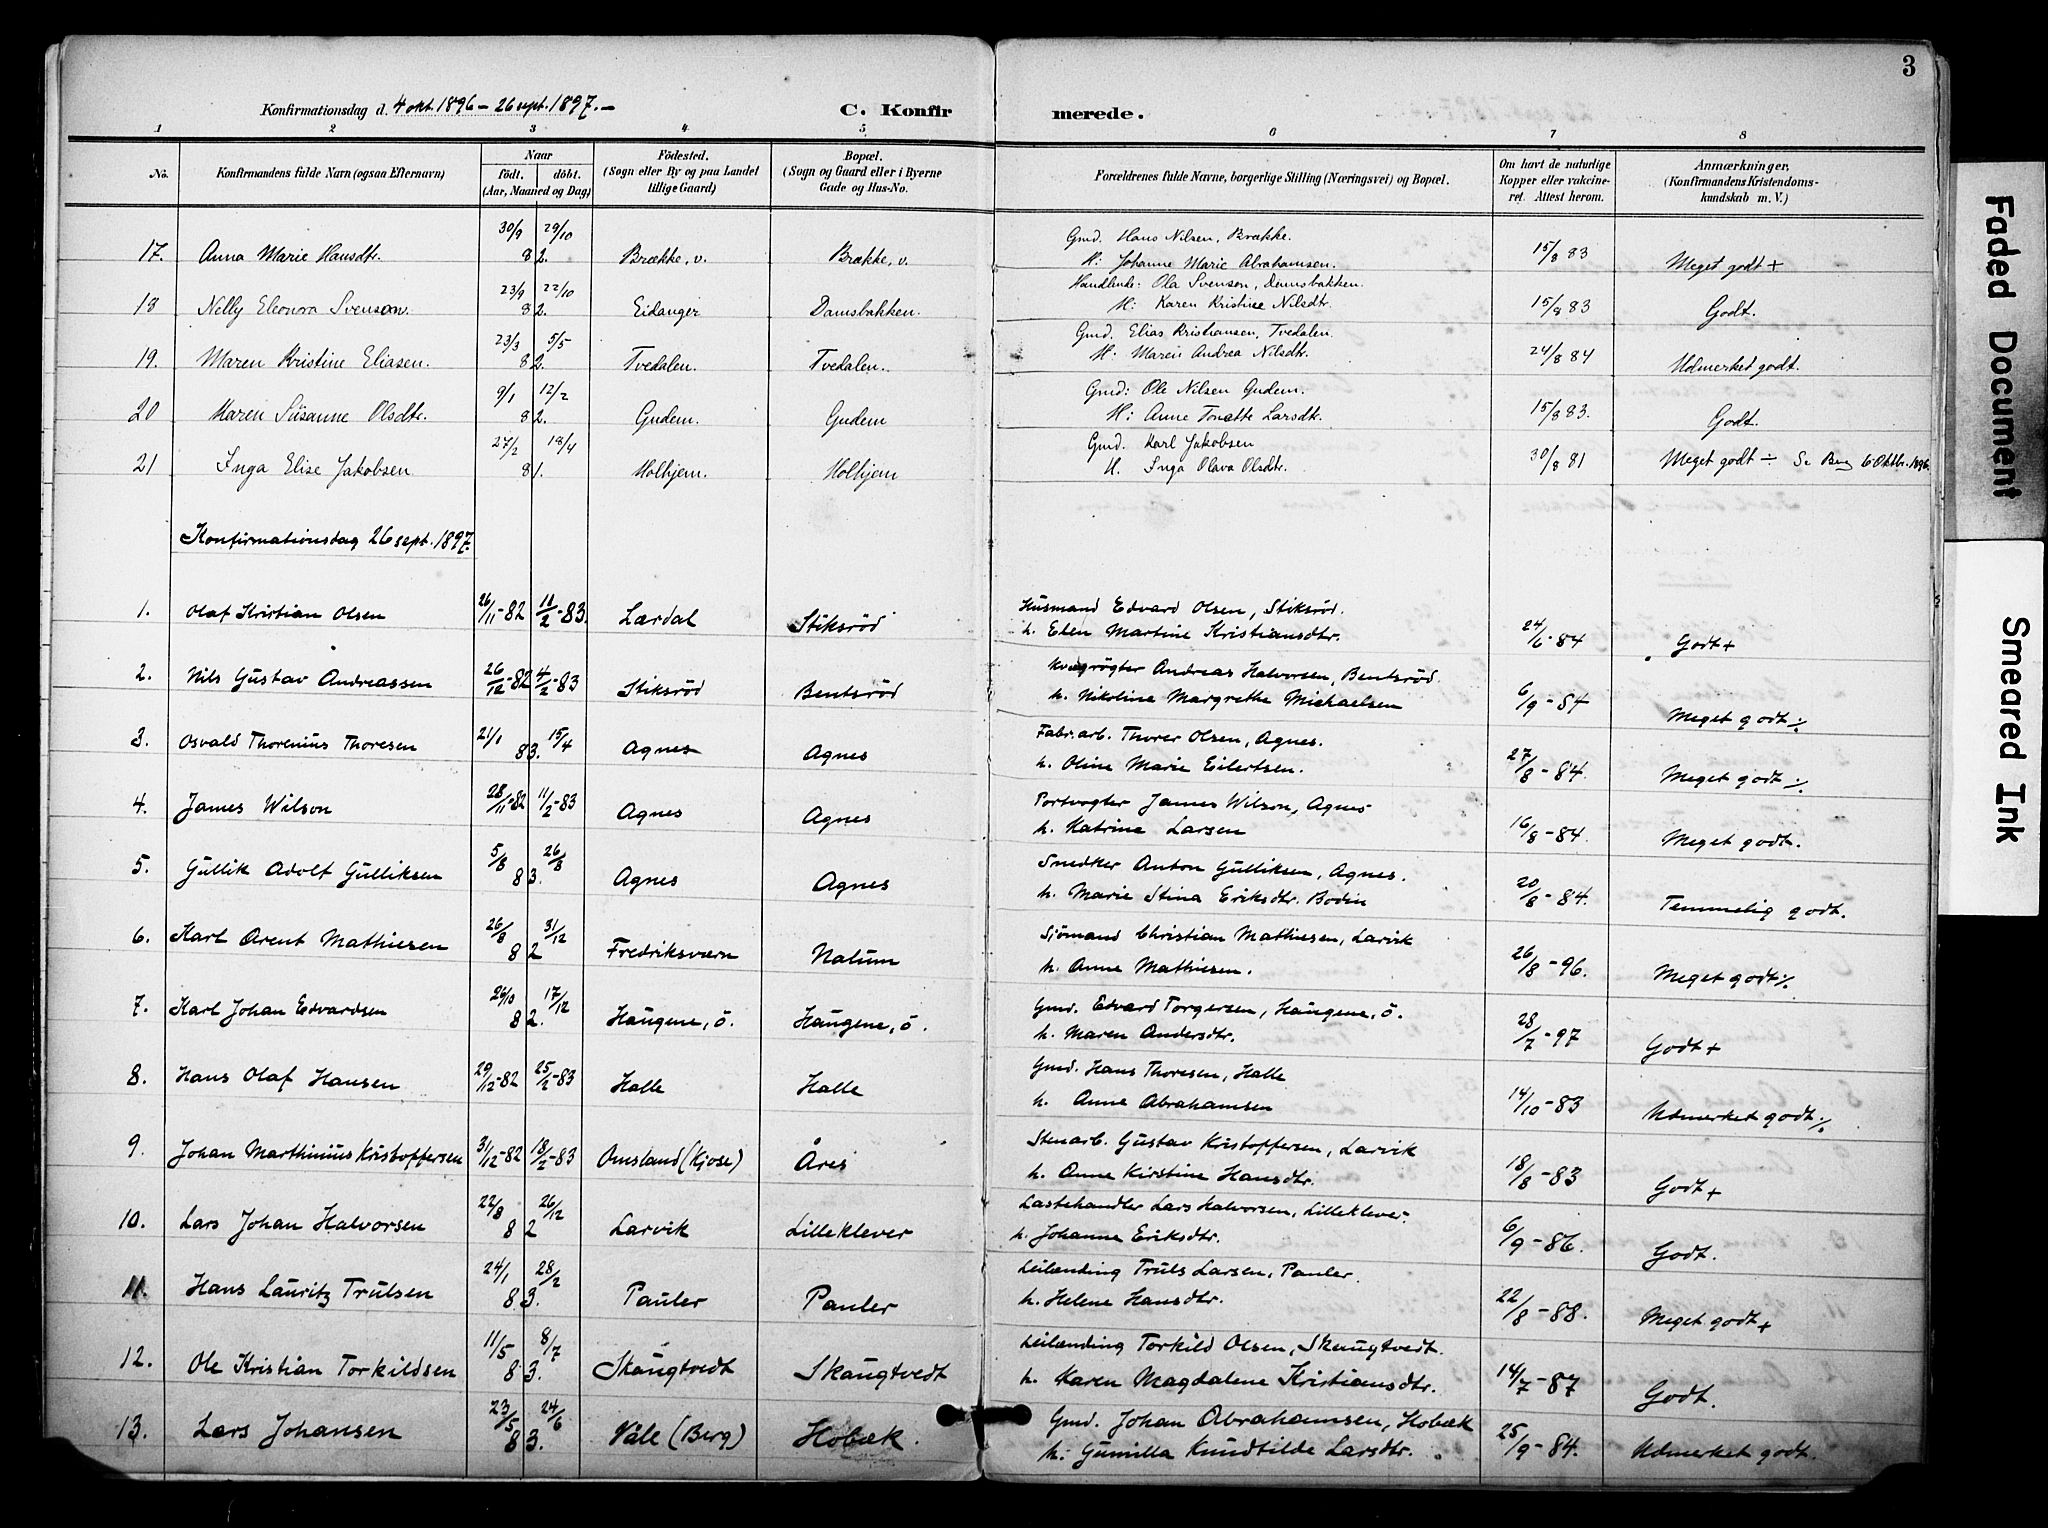 3
Konfirmationsdag d. 4 okt. 1896 – 26 sept. 1897. –
C. Konfirmerede.
1 2 3 4 5 6 7 8
No. Konfirmandens fulde Navn (ogsaa Efternavn) Naar födt. döbt. (Aar, Maaned og Dag) Födested. (Sogn eller By og paa Landet tillige Gaard) Bopæl. (Sogn og Gaard eller i Byerne Gade og Hus-No. Forældrenes fulde Navne, borgerlige Stilling (Næringsvei) og Bopæl. Om havt de naturlige Kopper eller vakcineret. Attest herom. Anmærkninger, (Konfirmandens Kristendomskundskab m. V.)
17. Anna Marie Hansdtr. 30/9 29/10 82. Brække, v. Brække, v. Gmd. Hans Nilsen, Brække. H: Johanne Marie Abrahamsen. 15/8 83 Meget godt +
18 Nelly Eleonora Svenson. 23/9 22/10 82. Eidanger Damsbakken. Handlende: Ola Svenson, Damsbakken. H: Karen Kristine Nilsdtr. 15/8 83 Godt.
19. Maren Kristine Eliasen. 23/3 5/5 82. Tvedalen. Tvedalen. Gmd: Elias Kristiansen, Tvedalen. H: Maren Andrea Nilsdtr. 24/8 84 Udmerket godt.
20 Maren Süsanne Olsdtr. 9/1 12/2 82. Gudem. Gudem Gmd: Ole Nilsen Gudem. H: Anne Tonette Larsdtr. 15/8 83. Godt.
21 Inga Elise Jakobsen 27/2 18/4 81. Holhjem. Holhjem Gmd. Karl Jakobsen H. Inga Olava Olsdtr. 30/8 81 Meget godt ÷ Se 6 Oktbr. 1896.
Konfirmationsdag 26 sept. 1897.
1. Olaf Kristian Olsen 26/11-82 11/2-83. Lærdal Stiksröd Hüsmand Edvard Olsen, Stiksröd. h. Elen Martine Kristiansdtr. 24/6-84 Godt+
2. Nils Güstav Andreassen 26/12-82 4/2-83 Stiksröd Bentsröd Kvægrögter Andreas Halvorsen, Bentsröd. h. Nikoline Margrethe Michaelsen 6/9-84 Meget godt ÷
3. Osvald Thorenius Thoresen 21/1 15/4 83. Agnes Agnes Fabr.arb. Thorer Olsen, Agnes. h. Oline Marie Eilertsen. 27/8-84. Meget godt ÷
4. James Wilson 28/11-82 11/2-83 Agnes Agnes Portvogter James Wilson, Agnes h. Katrine Larsen 16/8-84. Meget godt.
5. Güllik Adolf Gülliksen 5/8 26/8 83. Agnes Agnes Snedker Anton Gülliksen, Agnes. h. Marie Stina Eriksdtr. Bodin 20/8-84. Temmelig godt.
6. Karl Arent Mathiesen 26/8 31/12 82 Fredriksværn Nalum Sjömand Christian Mathiesen, Larvik h. Anne Mathiesen. 26/8-96. Meget godt ÷
7. Karl Johan Edvardsen 26/10 17/12 82. Haügene, ö. Haügene, ö. Gmd. Edvard Torgersen, Haügene, ö. h. Maren Andersdtr. 28/7-97 Godt+
8. Hans Olaf Hansen 29/12-82 25/2-83 Halle Halle Gmd. Hans Thoresen, Halle h. Anne Abrahamsen 14/10-83 Udmerket godt ÷
9. Johan Marthinius Kristoffersen 31/12-82 18/2-83 Omsland (Kjose) Åres Stenarb. Güstav Kristoffersen, Larvik h. Anne Kirstine Hansdtr. 18/8-83 Godt+
10. Lars Johan Halvorsen 22/8 26/12 82 Larvik Lilleklever Lastehandler Lars Halvorsen, Lilleklever. h. Johanne Eriksdtr. 6/9-86. Godt.
11. Hans Laüritz Trülsen 24/1 28/2 83. Pauler Pauler Leilænding Trüls Larsen, Pauler. h. Helene Hansdtr. 22/8-88. Meget godt+
12. Ole Kristian Torkildsen 11/5 8/7 83. Skaügtvedt Skaugtvedt Leilænding Torkild Olsen, Skaügtvedt. h. Karen Magdalene Kristiansdtr. 14/7-87 Godt.
13. Lars Johansen 23/5 24/6 83. Våle (Berg) Hobæk. Gmd. Johan Abrahamsen, Hobæk h. Gunilla Knudtilde Larsdtr. 25/9-84. Udmerket godt.
Faded Document
Smeared Ink